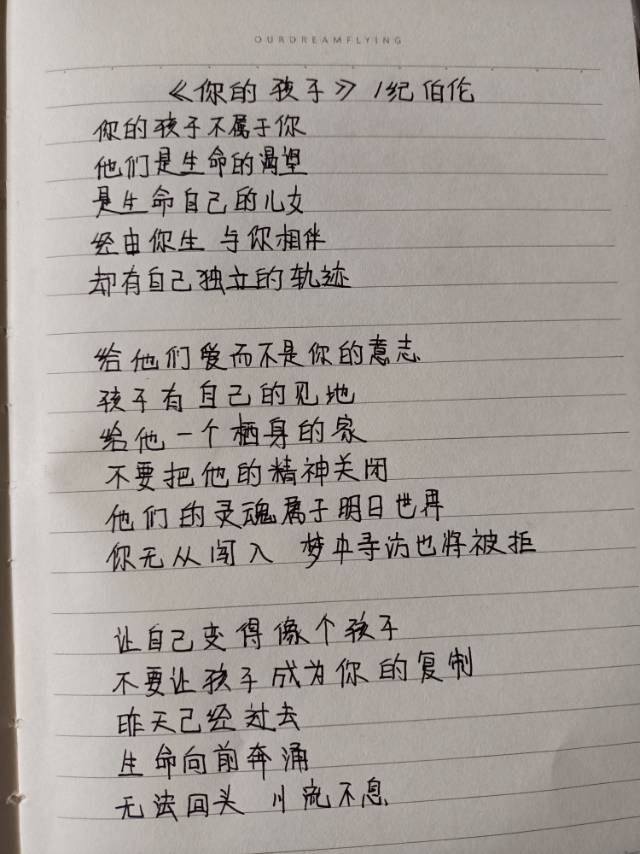 OURDREAMFLYING
《你的孩子》/纪伯伦
你的孩子不属于你
他们是生命的渴望
是生命自己的儿女
经由你生 与你相伴
却有自己独立的轨迹
给他们爱而不是你的意志
孩子有自己的见地
给他一个栖身的家
不要把他的精神关闭
他们的灵魂属于明日世界
你无从闯入 梦中寻访也将被拒
让自己变得像个孩子
不要让孩子成为你的复制
昨天已经过去
生命向前奔涌
无法回头 川流不息